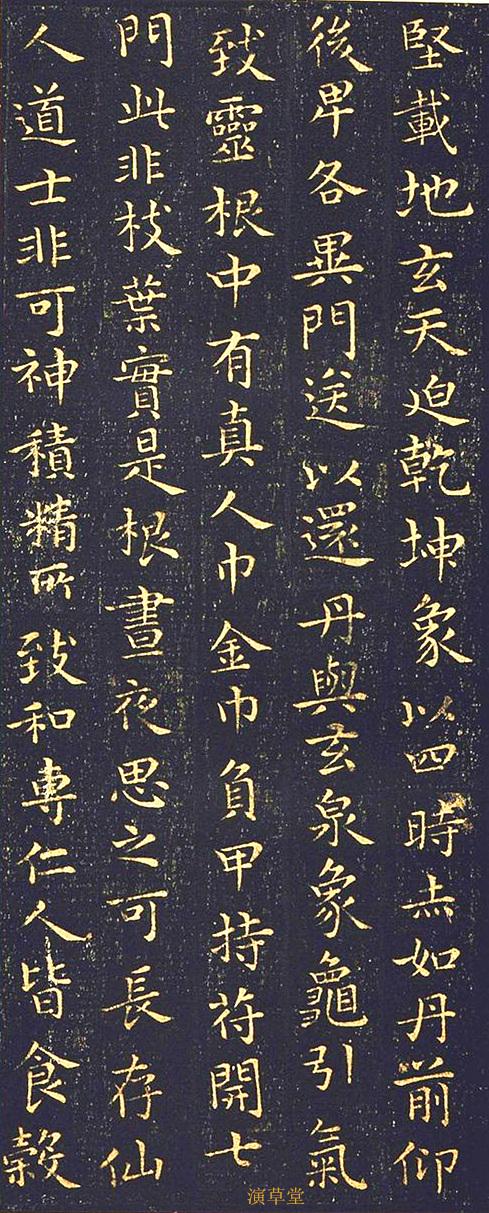 堅載地玄天迫乾坤象以四時赤如丹前仰
後卑各異門送以還丹與玄泉象龜引氣
致靈根中有真人巾金巾負甲持符開七
門此非枝葉實是根晝夜思之可長存仙
人道士非可神積精所致和專仁人皆食穀
演草堂